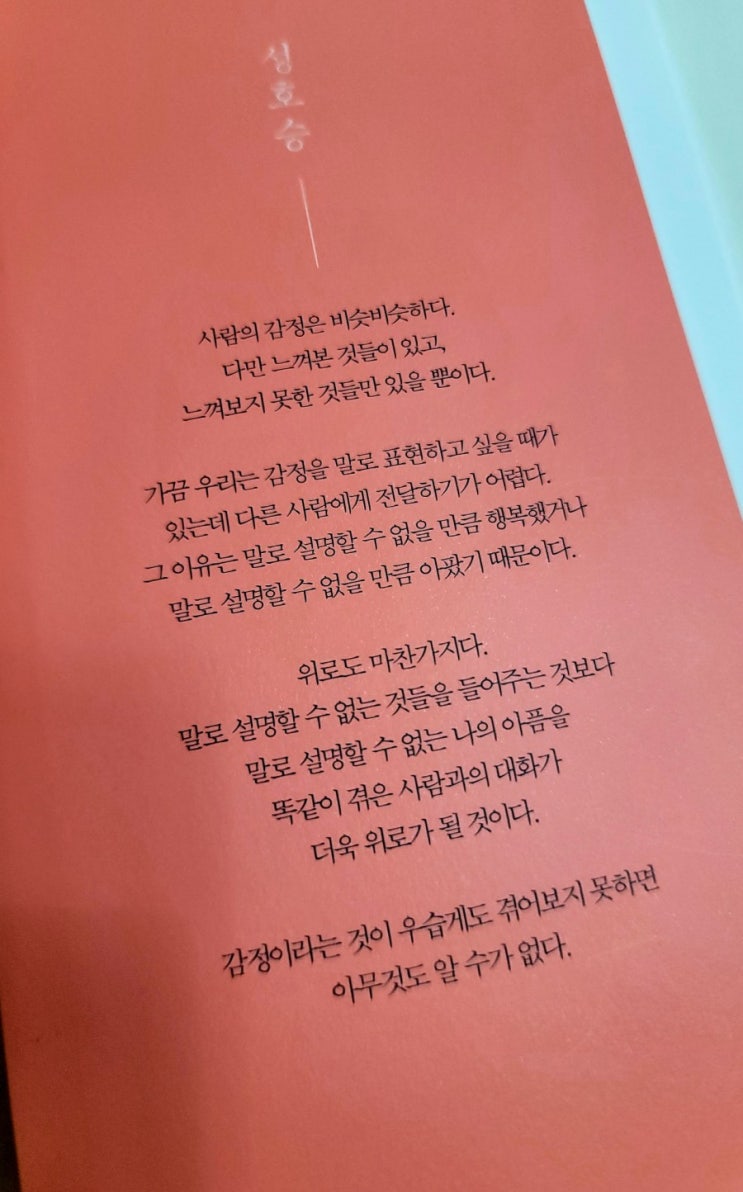 심호승
사람의 감정은 비슷비슷하다.
다만 느껴본 것들이 있고,
느껴보지 못한 것들만 있을 뿐이다.
가끔 우리는 감정을 말로 표현하고 싶을 때가
있는데 다른 사람에게 전달하기가 어렵다.
그 이유는 말로 설명할 수 없을 만큼 행복했거나
말로 설명할 수 없을 만큼 아팠기 때문이다.
위로도 마찬가지다.
말로 설명할 수 없는 것들을 들어주는 것보다
말로 설명할 수 없는 나의 아픔을
똑같이 겪은 사람과의 대화가
더욱 위로가 될 것이다.
감정이라는 것이 우습게도 겪어보지 못하면
아무것도 알 수가 없다.